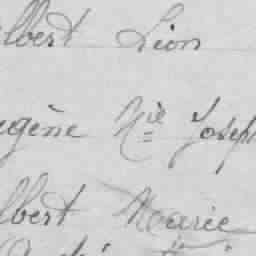 lbert Léon
ugène Nie Joseph
lbert Marie